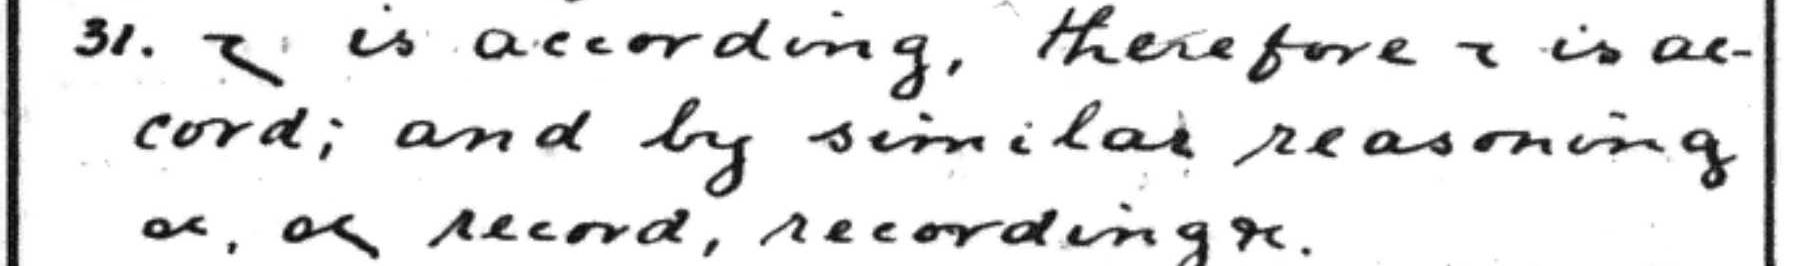 31. is according, therefore is ac-
cord; and by similar reasoning
record, recording